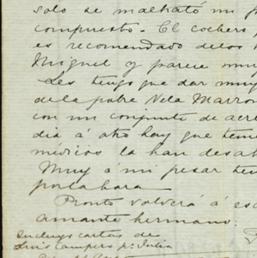 solo se malható mi p
compuesto. El cochero
es recomendado de los
Miguel y parece muy
Les tengo que dar muy
de la pobre Vela Marron
con un conjunto de acre
dia á otro hay que tem
médicos la han desah
Muy a mi pesar ten
por la hora
Pronto volverá á es
amante hermano
Incluyo cartas de
Luis Campero pa. Julia